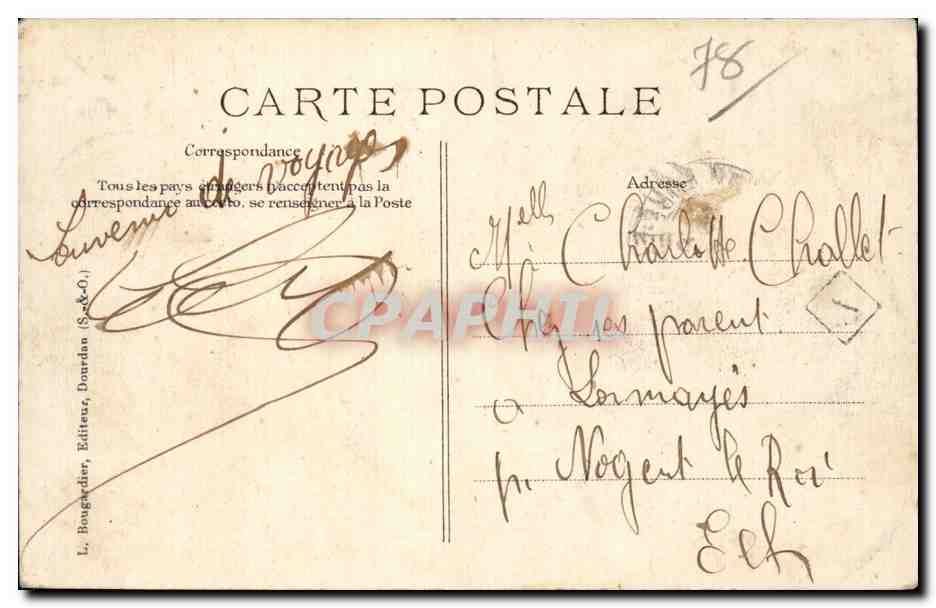 78
CARTE POSTALE
Correspondance
Tous les pays étrangers n'acceptent pas la
correspondance au recto, se renseigner à la Poste
Souvenir de voyage
L. Bougardier, Editeur, Dourdan (S.-&-O.)
Adresse
Melle Charlotte Challet
Chez ses parent
a Lormayés
pr Nogent le Roi
E et L
CPAPHIL